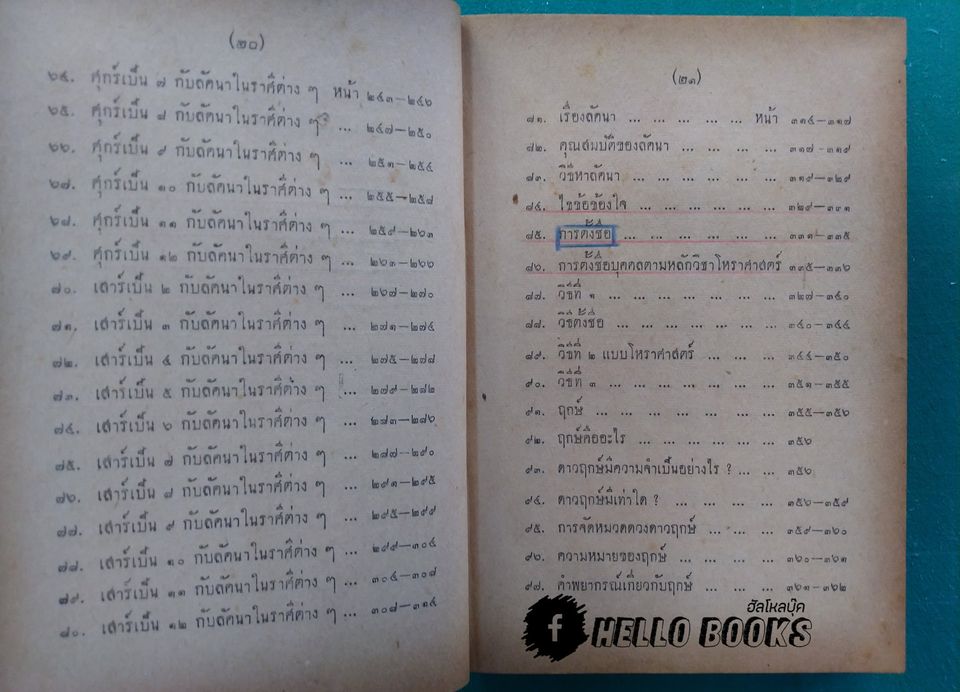 (๒๐)
๖๔. ศุกร์เป็น ๗ กับลัคนาในราศีต่าง ๆ หน้า ๒๔๓—๒๔๖
๖๕. ศุกร์เป็น ๘ กับลัคนาในราศีต่าง ๆ ... ๒๔๗—๒๕๐
๖๖. ศุกร์เป็น ๙ กับลัคนาในราศีต่าง ๆ ... ๒๕๑—๒๕๔
๖๗. ศุกร์เป็น ๑๐ กับลัคนาในราศีต่าง ๆ ... ๒๕๕—๒๕๘
๖๘. ศุกร์เป็น ๑๑ กับลัคนาในราศีต่าง ๆ ... ๒๕๙—๒๖๓
๖๙. ศุกร์เป็น ๑๒ กับลัคนาในราศีต่าง ๆ ... ๒๖๓—๒๖๖
๗๐. เสาร์เป็น ๒ กับลัคนาในราศีต่าง ๆ ... ๒๖๗—๒๗๐
๗๑. เสาร์เป็น ๓ กับลัคนาในราศีต่าง ๆ ... ๒๗๑—๒๗๔
๗๒. เสาร์เป็น ๔ กับลัคนาในราศีต่าง ๆ ... ๒๗๕—๒๗๘
๗๓. เสาร์เป็น ๕ กับลัคนาในราศีต่าง ๆ ... ๒๗๙—๒๘๒
๗๔. เสาร์เป็น ๖ กับลัคนาในราศีต่าง ๆ ... ๒๘๓—๒๘๖
๗๕. เสาร์เป็น ๗ กับลัคนาในราศีต่าง ๆ ... ๒๘๗—๒๙๐
๗๖. เสาร์เป็น ๘ กับลัคนาในราศีต่าง ๆ ... ๒๙๑—๒๙๕
๗๗. เสาร์เป็น ๙ กับลัคนาในราศีต่าง ๆ ... ๒๙๕—๒๙๙
๗๘. เสาร์เป็น ๑๐ กับลัคนาในราศีต่าง ๆ ... ๒๙๙—๓๐๔
๗๙. เสาร์เป็น ๑๑ กับลัคนาในราศีต่าง ๆ ... ๓๐๔—๓๐๘
๘๐. เสาร์เป็น ๑๒ กับลัคนาในราศีต่าง ๆ ... ๓๐๘—๓๑๔
(๒๑)
๘๑. เรื่องลัคนา ... ... ... ... ... หน้า ๓๑๔—๓๑๗
๘๒. คุณสมบัติของลัคนา ... ... ... ... ๓๑๗-๓๑๙
๘๓. วิธีหาลัคนา ... ... ... ... ... ... ๓๑๙—๓๒๙
๘๔. ไขข้อข้องใจ ... ... ... ... ... ... ๓๒๙—๓๓๑
๘๕. การตั้งชื่อ ... ... ... ... ... ... ๓๓๑—๓๓๕
๘๖. การตั้งชื่อบุคคลตามหลักวิชาโหราศาสตร์ ๓๓๕—๓๓๖
๘๗. วิธีที่ ๑ ... ... ... ... ... ... ๓๒๗—๓๔๐
๘๘. วิธีตั้งชื่อ ... ... ... ... ... ... ๓๔๐—๓๔๔
๘๙. วิธีที่ ๒ แบบโหราศาสตร์ ... ... ... ๓๔๔—๓๕๐
๙๐. วิธีที่ ๓ ... ... ... ... ... ... ๓๕๑—๓๕๕
๙๑. ฤกษ์ ... ... ... ... ... ... ... ๓๕๕—๓๕๖
๙๒. ฤกษ์คืออะไร ... ... ... ... ... ... ๓๕๖
๙๓. ดาวฤกษ์มีความจำเป็นอย่างไร ? ... ... ๓๕๖
๙๔. ดาวฤกษ์มีเท่าใด ? ... ... ... ... ๓๕๖—๓๕๙
๙๕. การจัดหมวดดวงดาวฤกษ์ ... ... ... ๓๕๙—๓๖๐
๙๖. ความหมายของฤกษ์ ... ... ... ... ๓๖๐—๓๖๑
๙๗. คำพยากรณ์เกี่ยวกับฤกษ์ ... ... ... ๓๖๑—๓๖๒
ฮัลโหลบุ๊ค
f HELLO BOOKS